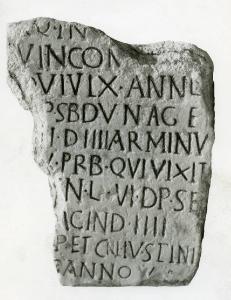 Q·IN
VINCOM
QVIVIX·ANNL
PSBDVNAGE
I·DIIIIARMINV
PRB·QVIVXIT
N·L·VI·DP·SE
ICIND·IIII
P·ETCNIVSTINI
ANNO